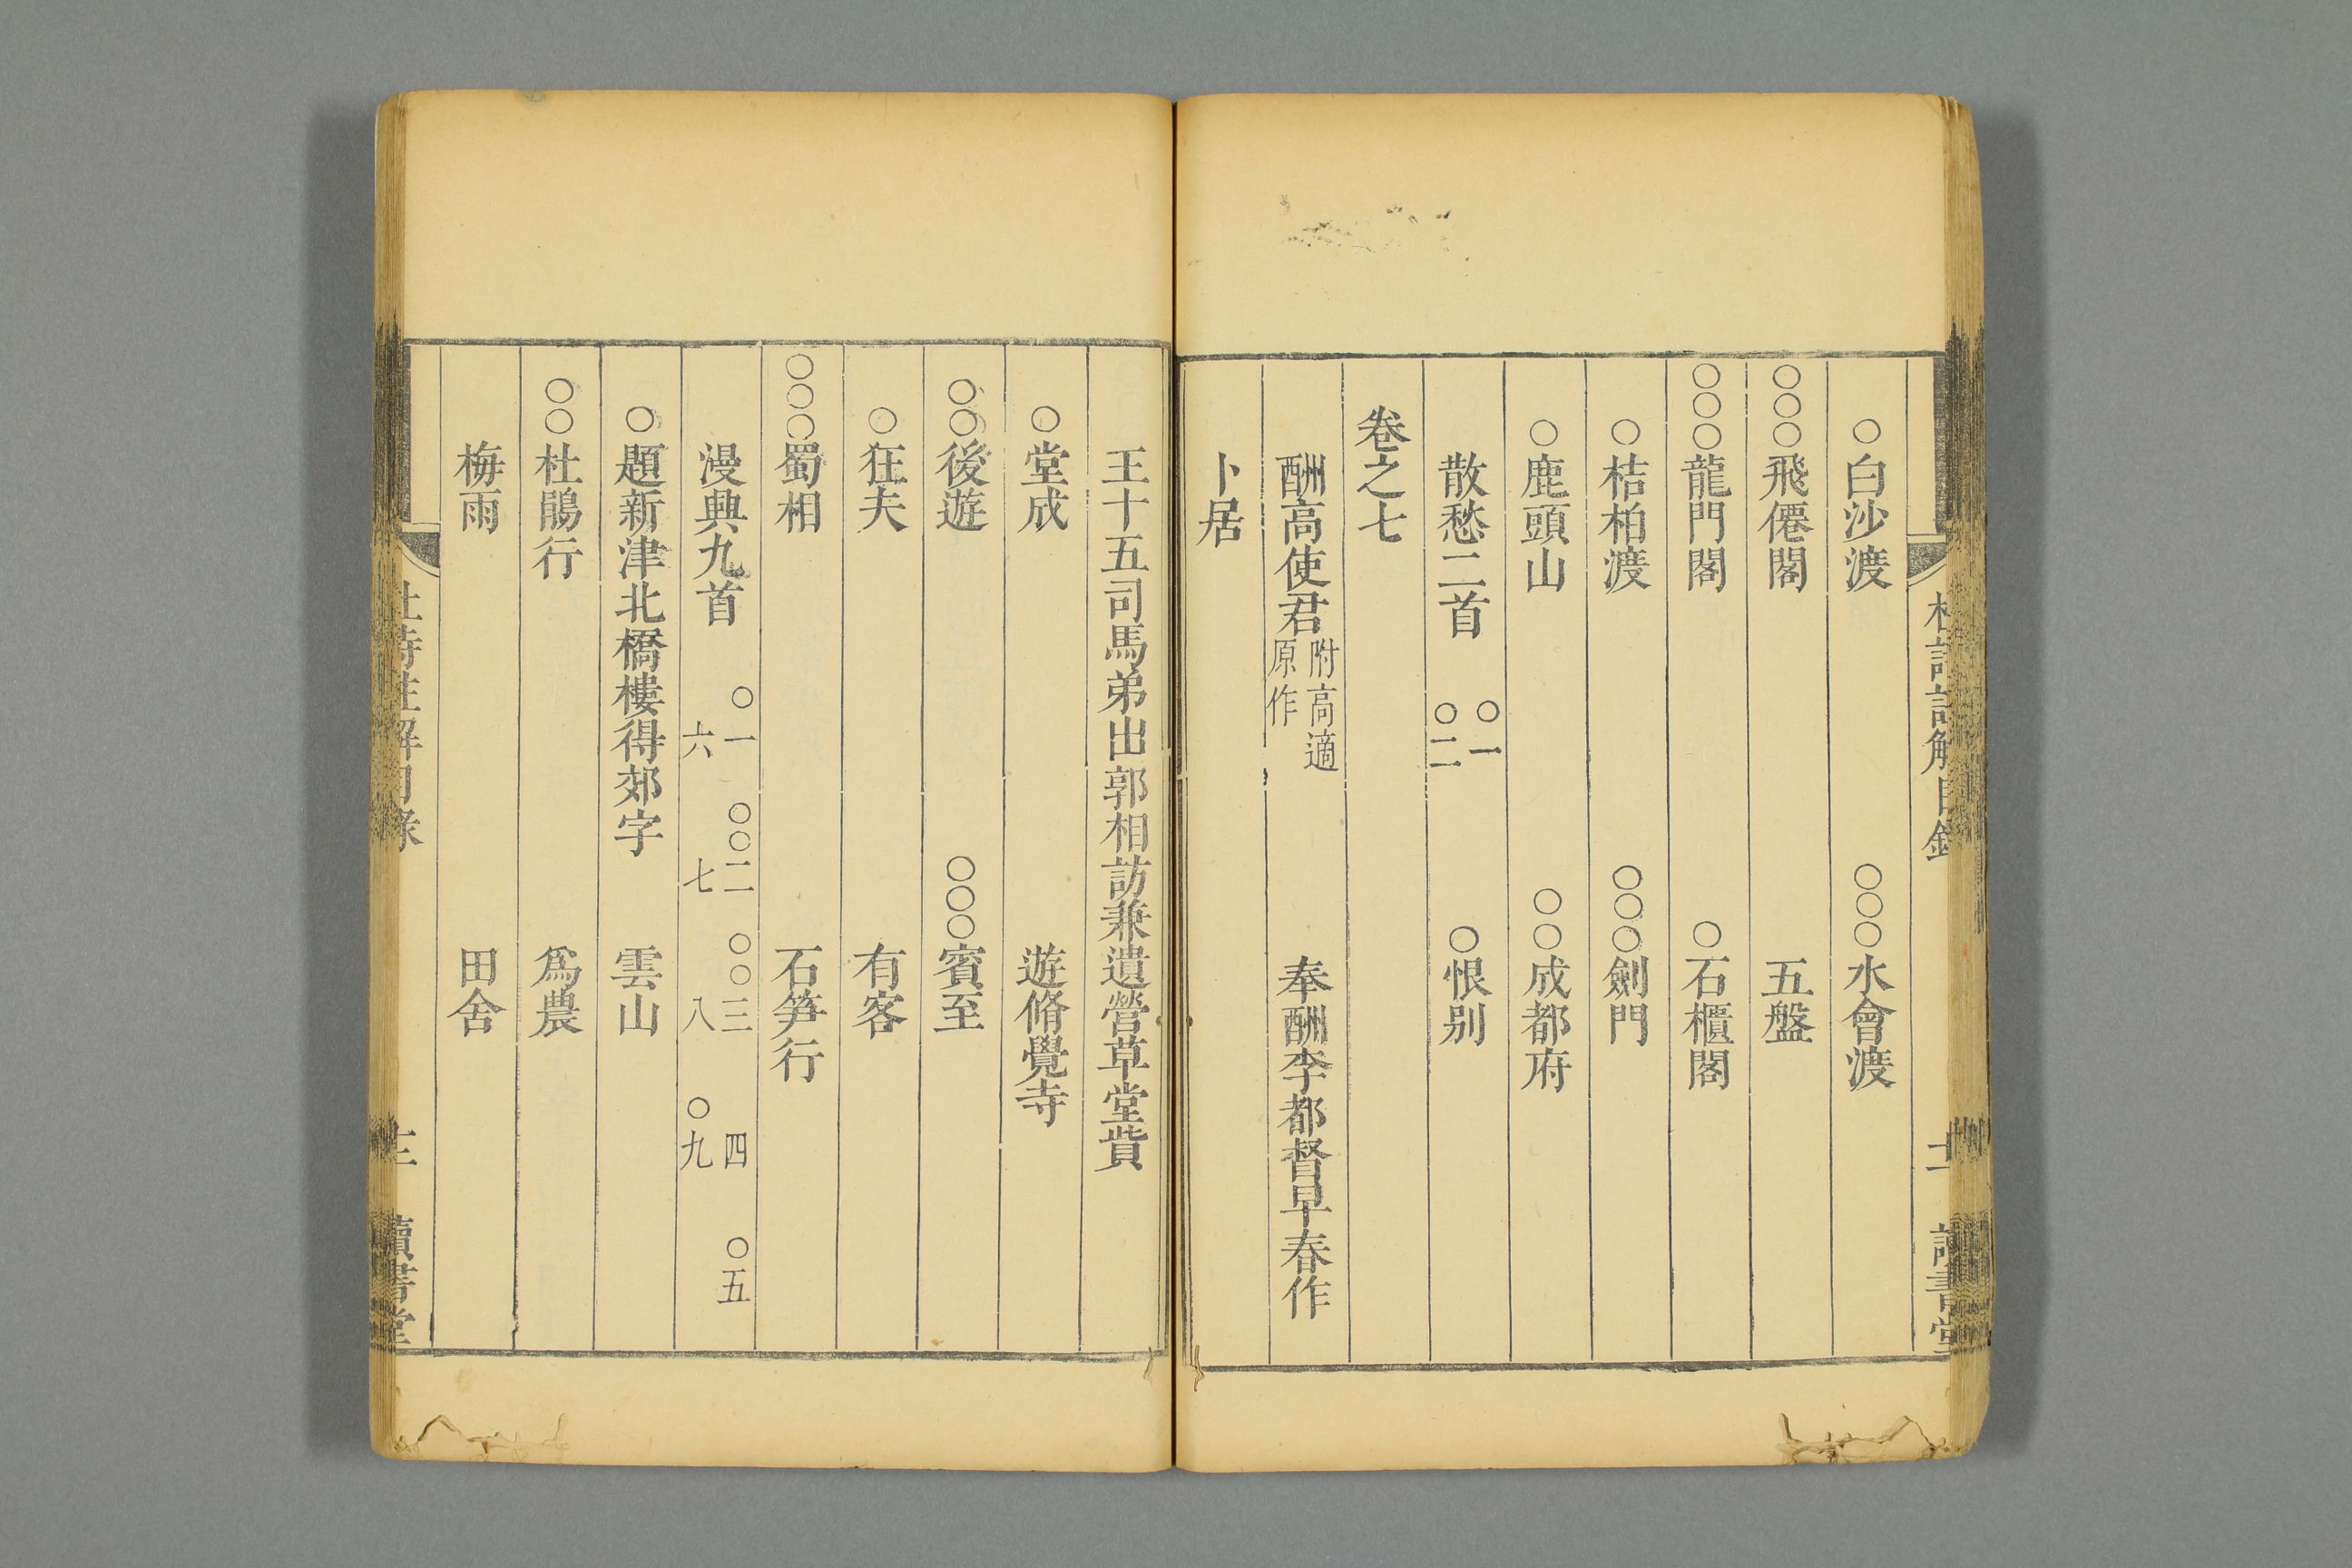 ○白沙渡　○○○水會渡
○○○飛僊閣　五盤
○○○龍門閣　○石櫃閣
○桔柏渡　○○○劍門
○鹿頭山　○○成都府
散愁二首　○一　○二　○恨别
卷之七
酬高使君　附高適原作　奉酬李都督早春作
卜居
王十五司馬弟出郭相訪兼遺營草堂貲
○堂成　遊脩覺寺
○○後遊　○○○賓至
○狂夫　有客
○○○蜀相　石笋行
漫興九首　○一　○○二　○○三　四　○五　六　七　八　○九
○題新津北橋樓得郊字　雲山
○○杜鵑行　爲農
梅雨　田舍
杜詩註解目錄　讀書堂